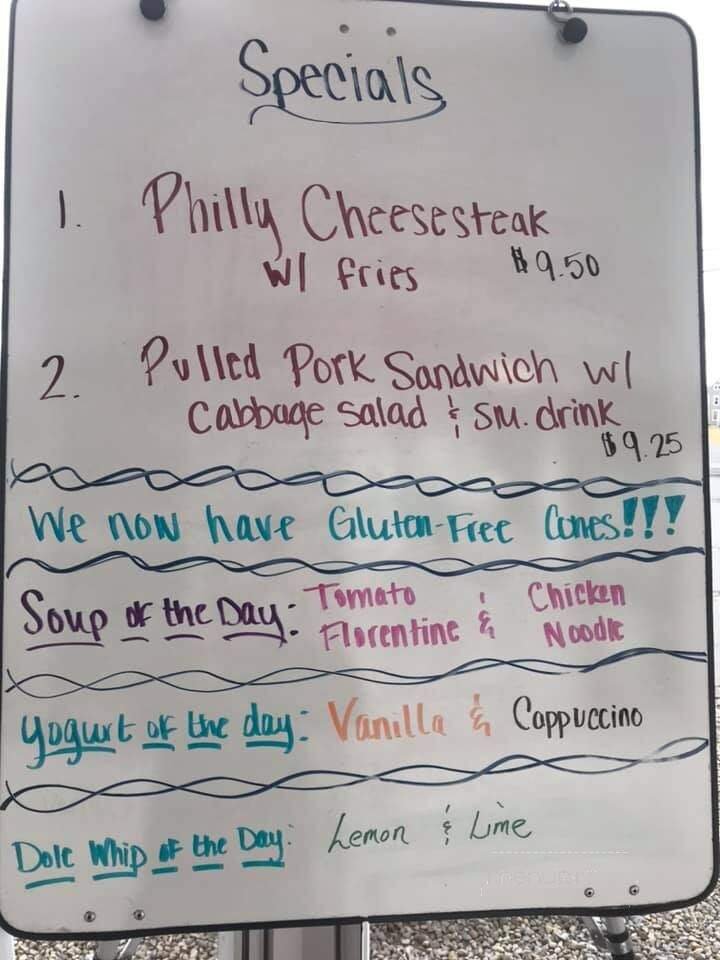 Specials
1. Philly Cheesesteak
w/ fries $9.50
2. Pulled Pork Sandwich w/
cabbage salad & sm. drink
$9.25
We now have Gluten-Free Cones!!!
Soup of the Day: Tomato & Chicken
Florentine Noodle
Yogurt of the day: Vanilla & Cappuccino
Dole Whip of the Day: Lemon & Lime